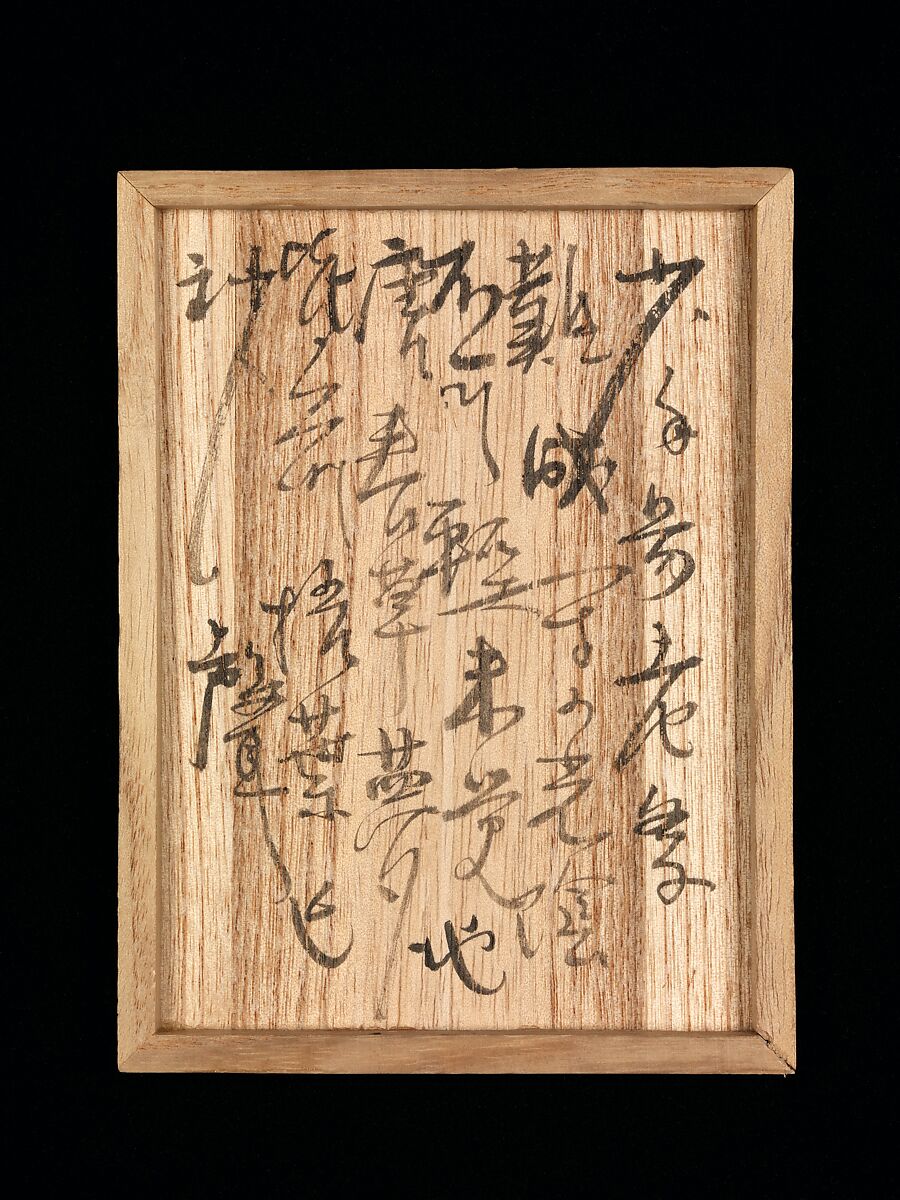 少年易老学
難成一寸光陰
不可輕未覚池
塘春草夢
階前梧葉已
秋聲